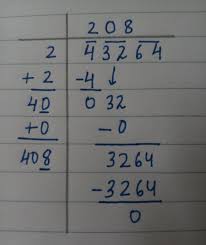 208
2 43264
+2 -4 ↓
40 032
+0 -0
408 3264
-3264
0